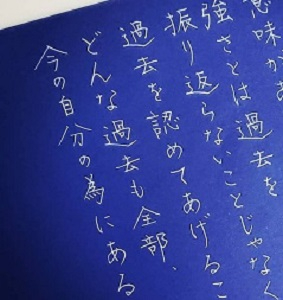 意味があ
強さとは過去を
振り返らないことじゃなく
過去を認めてあげるこ
どんな過去も全部、
今の自分の為にある